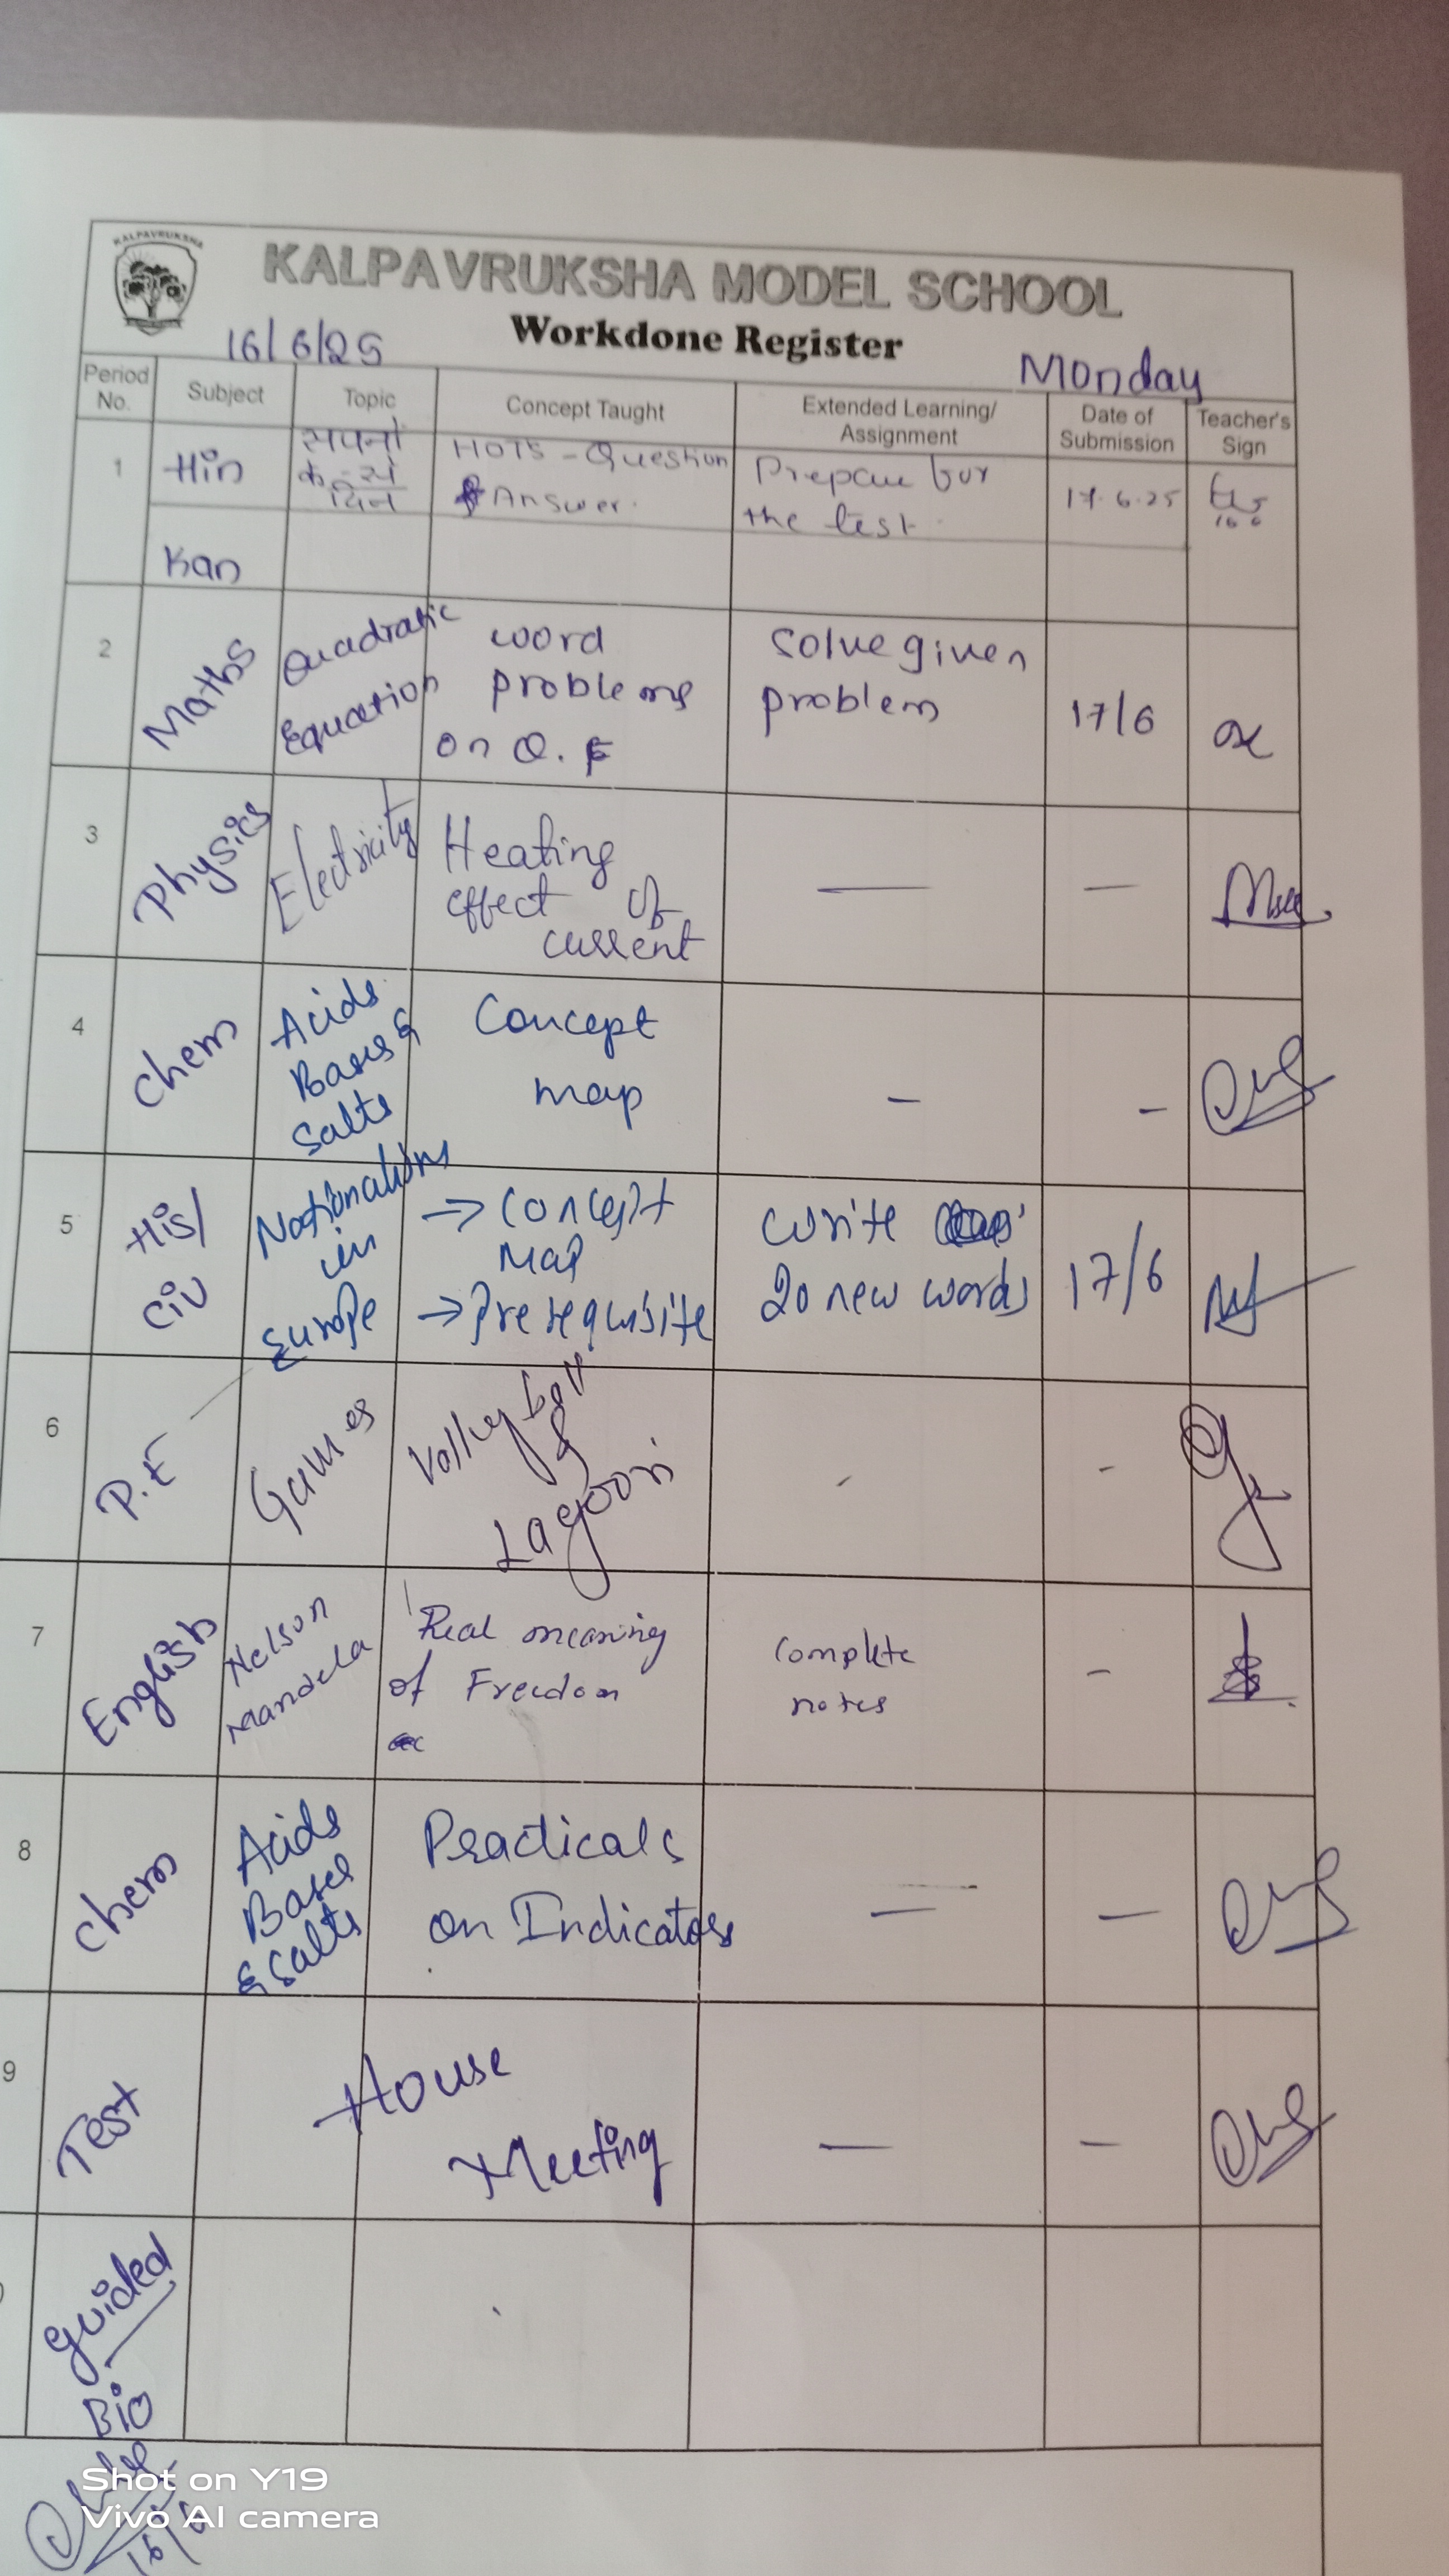 KALPAVRUKSHA
KALPAVRUKSHA MODEL SCHOOL
Workdone Register
16/6/25
Monday
Period No.
Subject
Topic
Concept Taught
Extended Learning/ Assignment
Date of Submission
Teacher's Sign
1
Hin
सपनों
के-से
दिन
HOTS - Question
& Answer.
Prepare for
the test.
17.6.25
Kan
2
Maths
Quadratic
Equation
word
problems
on Q.E
Solve given
problem
17/6
3
Physics
Electricity
Heating
effect of
current
—
—
4
Chem
Acids
Bases &
Salts
Concept
map
–
–
5
His/
Civ
Nationalism
in
Europe
→ Concept
Map
→ Prerequisite
write
20 new words
17/6
6
P.E
Games
Volley ball
&
Lagoori
-
-
7
English
Nelson
Mandela
Real meaning
of Freedom
Complete
notes
-
8
Chem
Acids
Bases
& Salts
Practicals
on Indicators
—
—
9
Test
House
Meeting
—
—
Guided
Bio
16/6
Shot on Y19
Vivo AI camera